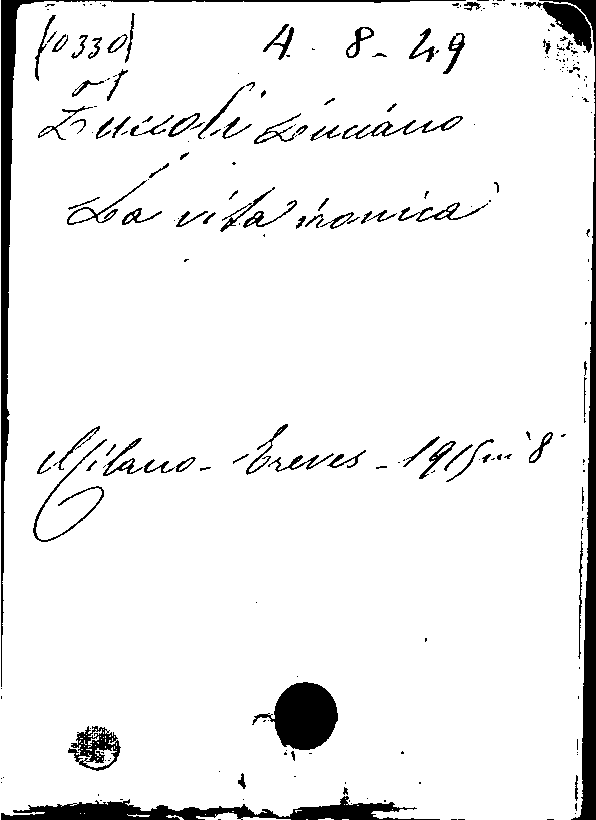 (10330) 4. 8. 29
Zuccoli Luciano
La vita ironica
Milano - Treves - 1915 in 8°